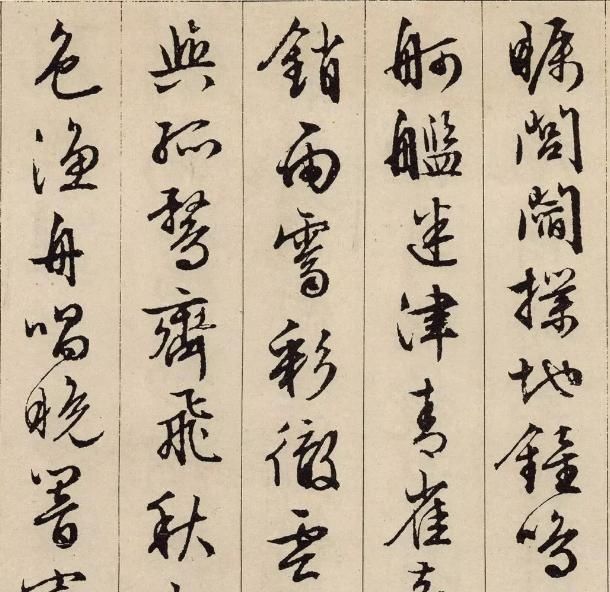 矚閭閻撲地鐘鳴
舸艦迷津青雀
銷雨霽彩徹雲
與孤鶩齊飛秋
色漁舟唱晚響